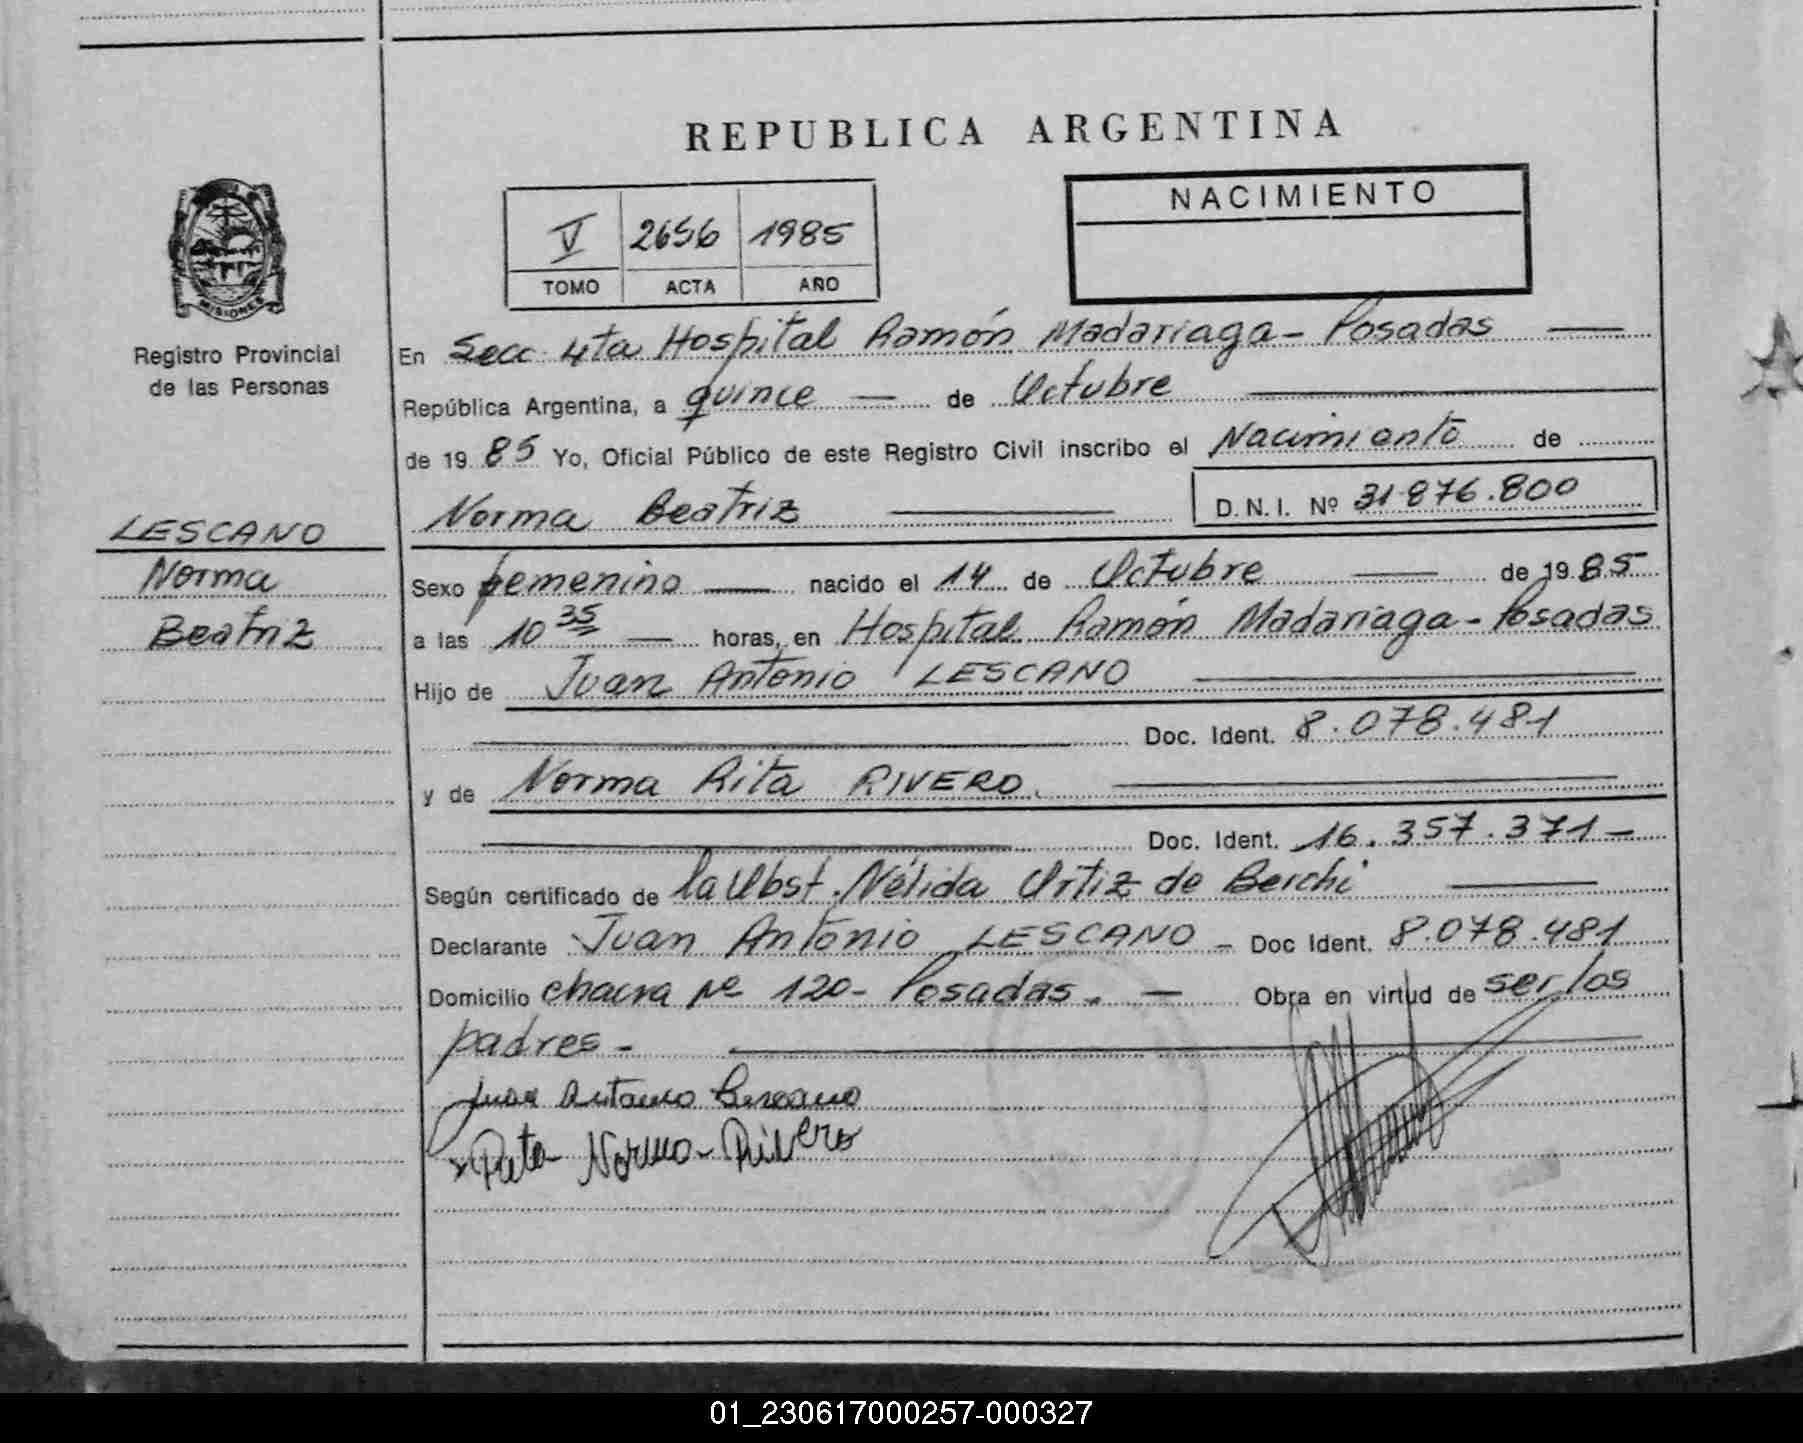 REPUBLICA ARGENTINA
NACIMIENTO
V 2656 1985
TOMO ACTA AÑO
MISIONES
Registro Provincial
de las Personas
LESCANO
Norma
Beatriz
En Secc. 4ta Hospital Ramón Madariaga - Posadas
República Argentina, a quince de Octubre
de 1985 Yo, Oficial Público de este Registro Civil inscribo el Nacimiento de
Norma Beatriz D.N.I. Nº 31.876.800
Sexo femenino nacido el 14 de Octubre de 1985
a las 10 35 horas, en Hospital Ramón Madariaga - Posadas
Hijo de Juan Antonio LESCANO
Doc. Ident. 8.078.481
y de Norma Rita RIVERO.
Doc. Ident. 16.357.371-
Según certificado de la Obst. Nélida Ortiz de Berchi
Declarante Juan Antonio LESCANO - Doc Ident. 8.078.481
Domicilio chacra Nº 120- Posadas. - Obra en virtud de ser los
padres -
Juan Antonio Lescano
x Rita Norma Rivero
01_230617000257-000327